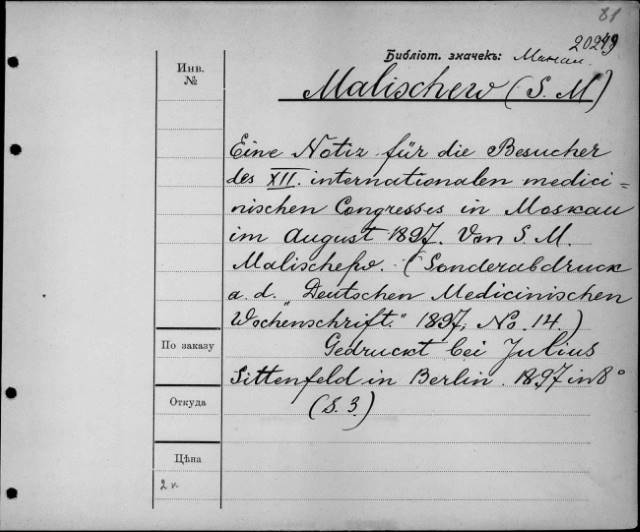 81
20249
Библіот. значекъ:
Инв.
№
Malischew (S. M)
Eine Notiz für die Besucher
des XII. internationalen medici=
nischen Congresses in Moskau
im August 1897. Von S. M.
Malischew. (Sonderabdruck
a. d. „Deutschen Medicinischen
Wochenschrift." 1897, No. 14.)
По заказу
Gedruckt bei Julius
Sittenfeld in Berlin. 1897 in 8°
Откуда
(S. 3.)
Цѣна